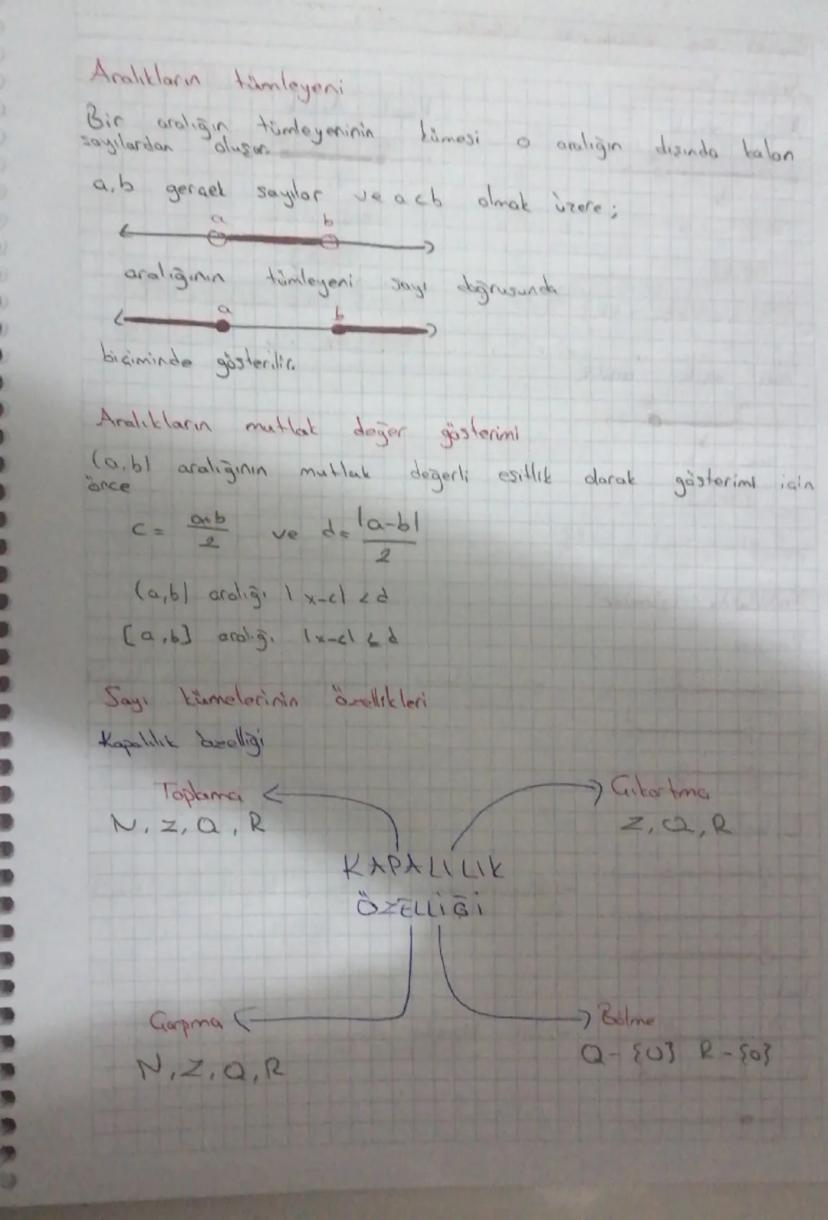 Aralıkların tümleyeni
Bir aralığın tümleyeninin kümesi o aralığın dışında kalan
sayılardan oluşur.
a,b gerçek sayılar ve a<b olmak üzere;
a b
aralığının tümleyeni sayı doğrusunda
a b
biçiminde gösterilir.
Aralıkların mutlak değer gösterimi
(a,b) aralığının mutlak değerli eşitlik olarak gösterimi için
önce
c = a+b/2 ve d = |a-b|/2
(a,b) aralığı |x-c| < d
[a,b] aralığı |x-c| ≤ d
Sayı kümelerinin özellikleri
Kapalılık özelliği
Toplama Çıkartma
N, Z, Q, R Z, Q, R
KAPALILIK
ÖZELLİĞİ
Çarpma Bölme
N, Z, Q, R Q-{0} R-{0}